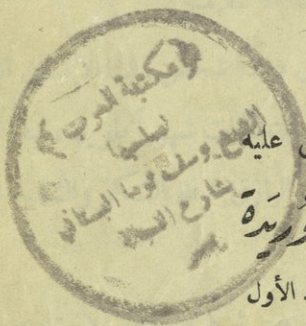 مكتبة العرب
لصاحبها
الشيخ يوسف توما البستاني
بشارع الفجالة
بمصر
عليه
الأول